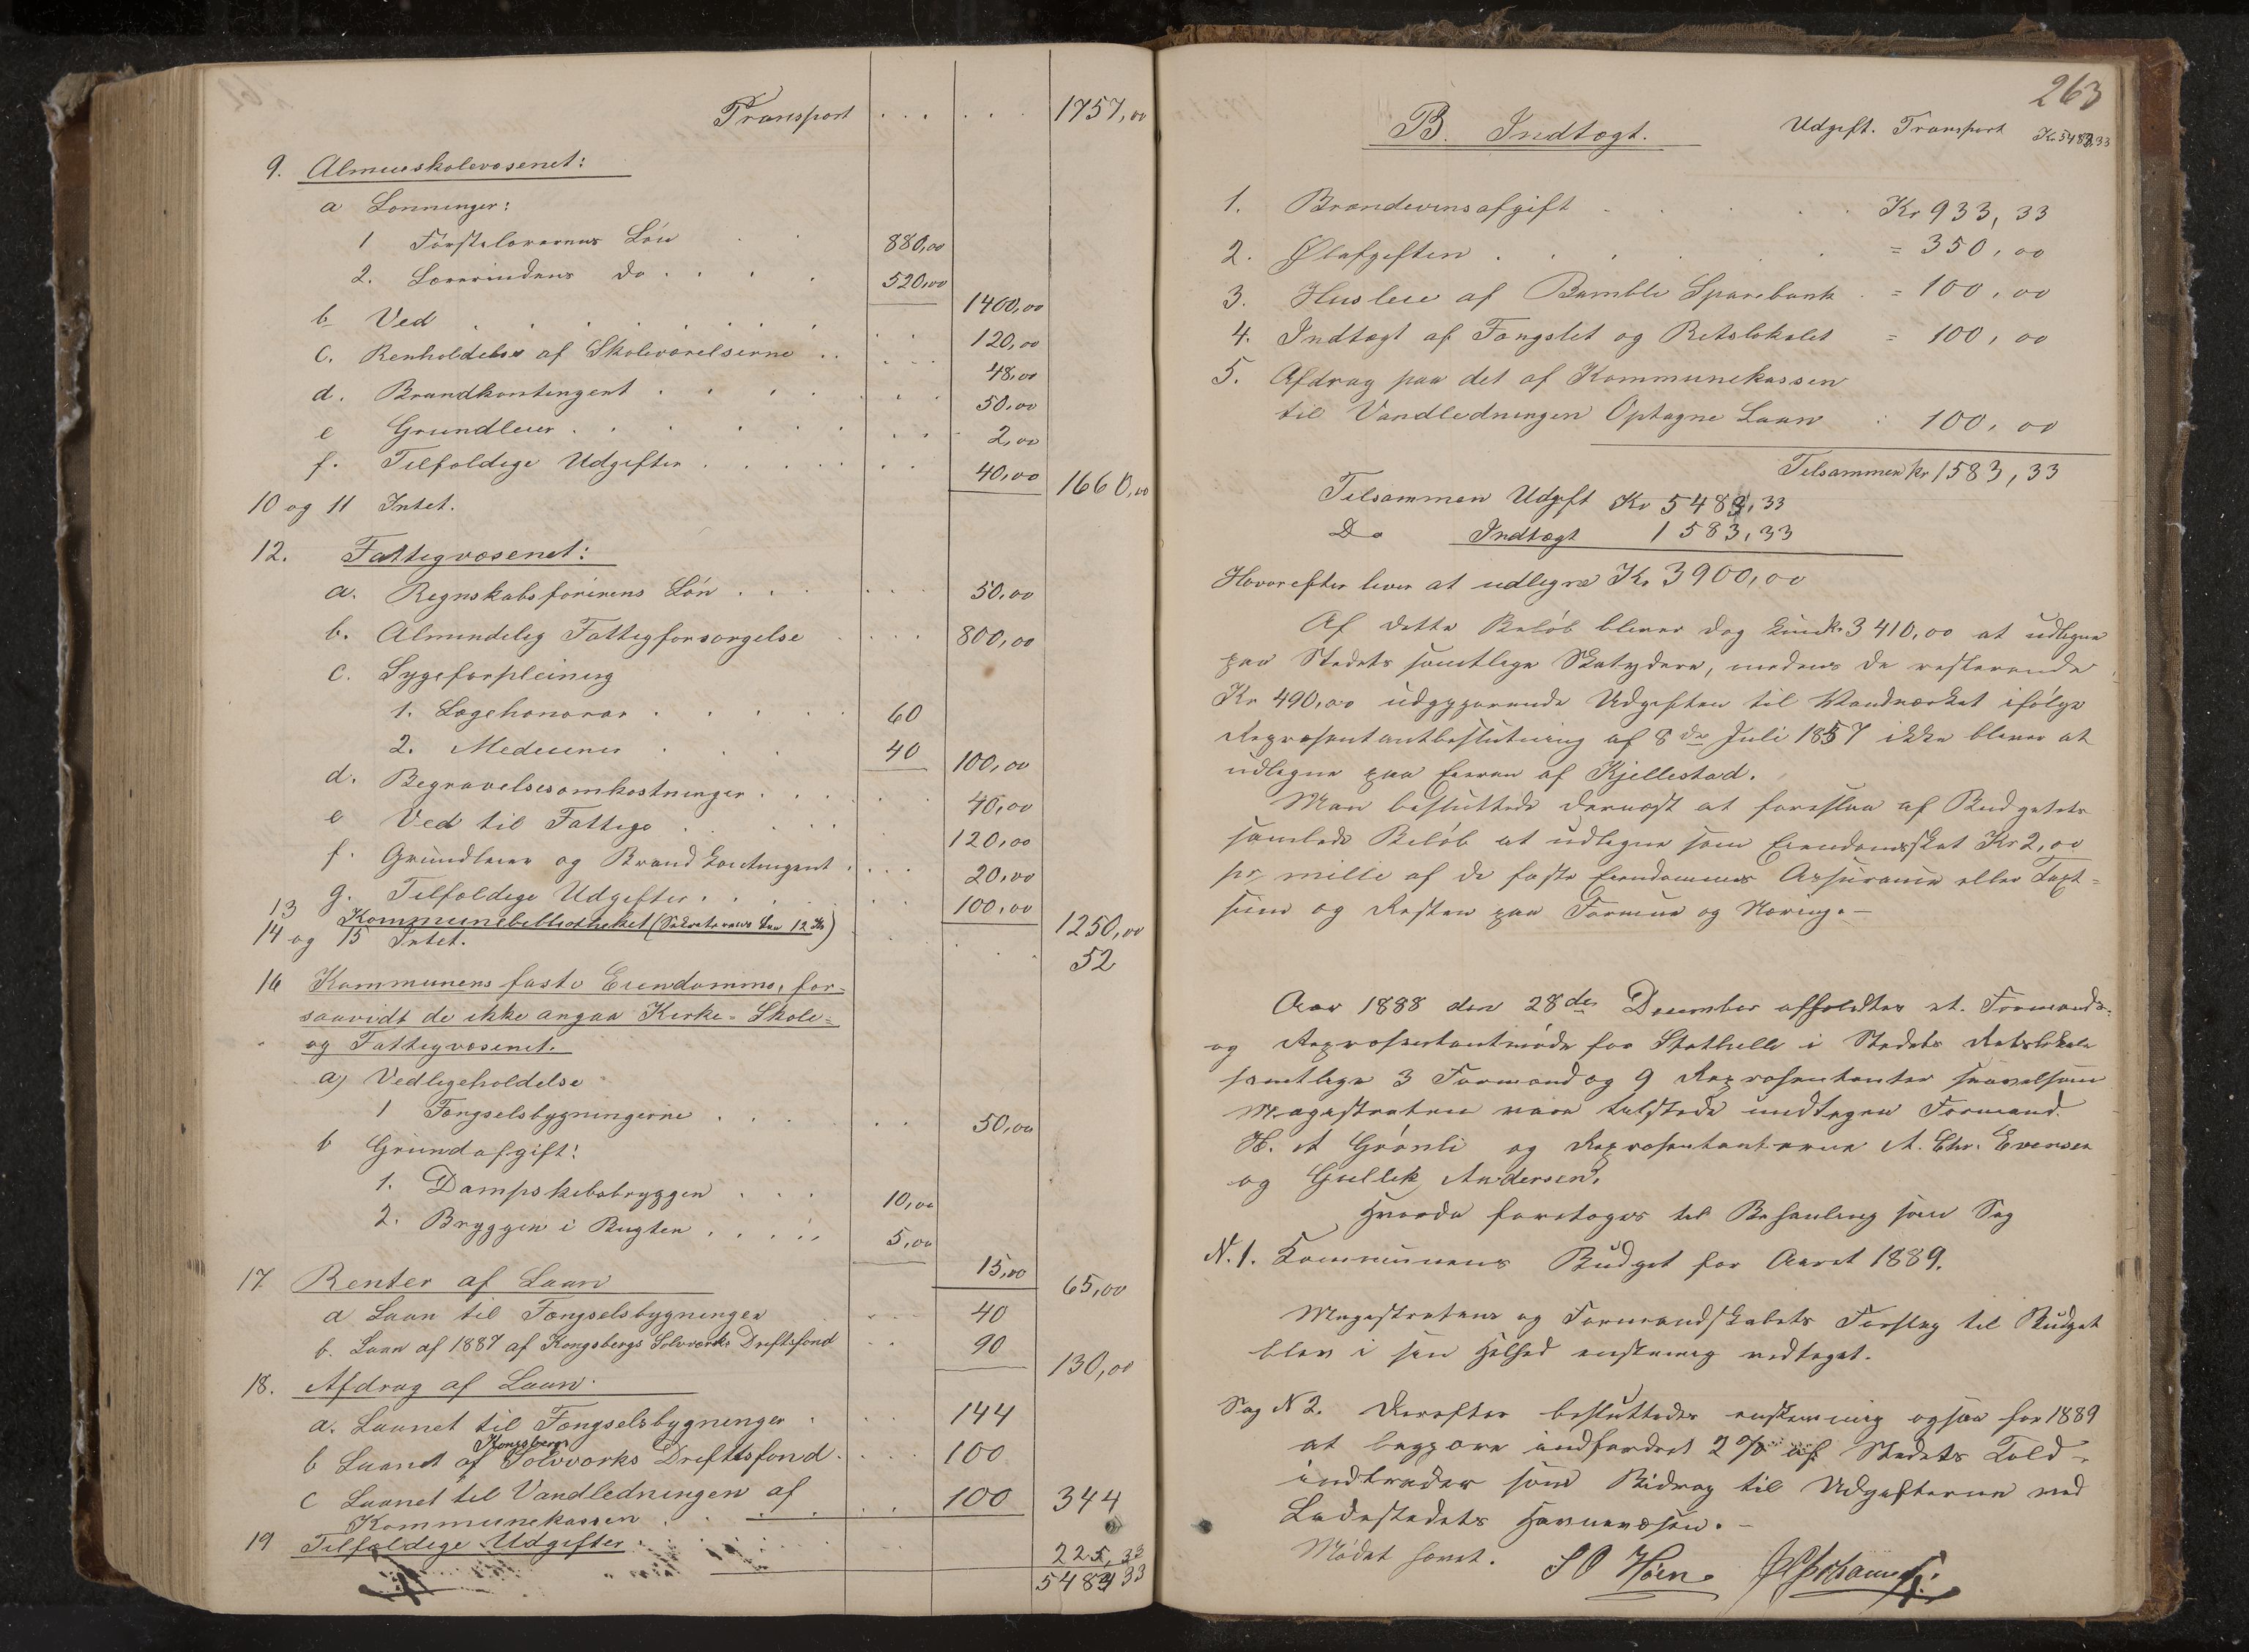 Transport . . . . . . 1757,00
9. Almueskolevæsenet:
a Lønninger:
1 Førstelærerens Løn . . 880,00
2. Lærerindens Do . . . . 520,00
1400,00
b Ved . . . . . . . 120,00
c. Renholdelse af Skoleværelserne . . 48,00
d. Brandkontingent . . . . 50,00
e Grundleier . . . . . . 2,00
f. Tilfældige Udgifter . . . . . 40,00 1660,00
10 og 11 Intet.
12. Fattigvæsenet:
a. Regnskabsførerens Løn . . . 50,00
b. Almindelig Fattigforsørgelse . . . 800,00
c. Sygeforpleining
1. Lægehonorar . . . . . 60
2. Mediciner . . . 40 100,00
d. Begravelsesomkostninger . . . 40,00
e Ved til Fattige . . . . 120,00
f. Grundleier og Brandkontingent . . . . 20,00
g. Tilfældige Udgifter . . . . 100,00 1250,00
13 Kommunebibliotheket (Bibliotekarens Løn 12 Kr) 52
14 og 15 Intet.
16 Kommunens faste Eiendomme, for-
saavidt de ikke angaa Kirke- Skole-
og Fattigvæsenet.
a) Vedligeholdelse
1 Fængselsbygningerne . . . 50,00
b Grundafgift:
1. Dampskibsbryggen . . . 10,00
2. Bryggen i Bugten . . . . . 5,00
15,00 65,00
17. Renter af Laan
a Laan til Fængselsbygninger . . . 40
b. Laan af 1887 af Kongsbergs Sølvværks Driftsfond . . 90 130,00
18. Afdrag af Laan.
a. Laanet til Fængselsbygninger . . . . 144
b Laanet af Kongsbergs Sølvværks Driftsfond . . . . 100
c Laanet til Vandledningen af
Kommunekassen . . . . 100 344
19 Tilfældige Udgifter . . . . 225,33
5483 33
263
B. Indtægt. Udgift. Transport Kr 5483,33
1. Brændevinsafgift . . . . . Kr 933,33
2. Ølafgiften . . . . . = 350,00
3. Husleie af Bamble Sparebank . = 100,00
4. Indtægt af Fængslet og Retslokalet = 100,00
5. Afdrag paa det af Kommunekassen
til Vandledningen Optagne Laan : 100,00
Tilsammen kr 1583,33
Tilsammen Udgift Kr 5483,33
Do Indtægt 1583,33
Hvorefter bliver at udligne Kr 3900,00
Af dette Beløb bliver dog kun Kr 3410,00 at udligne
paa Stedets samtlige Skatydere, medens de resterende
Kr 490,00 udgjørende Udgiften til Vandværket ifølge
Repræsentantbeslutning af 8de Juli 1857 ikke bliver at
udligne paa Eieren af Kjellestad.
Man besluttede dernæst at foreslaa af Budgetets
samlede Beløb at udligne som Eiendomsskat Kr 2,00
pr mille af de faste Eiendommes Assurance eller Taxt-
sum og Resten paa Formue og Næring.-
Aar 1888 den 28de December afholdtes et Formands-
og Repræsentantmøde for Stathelle i Stedets Retslokale
samtlige 3 Formænd og 9 Repræsentanter saavelsom
Magistraten vare tilstede undtagen Formand
H. A Grønli og Repræsentanterne A. Chr. Evensen
og Gullik Andersen.
Hvorda foretoges til Behanling som Sag
N. 1. Kommunens Budget for Aaret 1889.
Magistratens og Formandskabets Forslag til Budget
blev i sin Helhed enstemmig vedtaget.
Sag N 2. Derefter besluttedes enstemmig ogsaa for 1889
at begjære indfordret 2 % af Stedets Told-
indtræder som Bidrag til Udgifterne ved
Ladestedets Havnevæsen. -
Mødet hævet. S O Hoen.